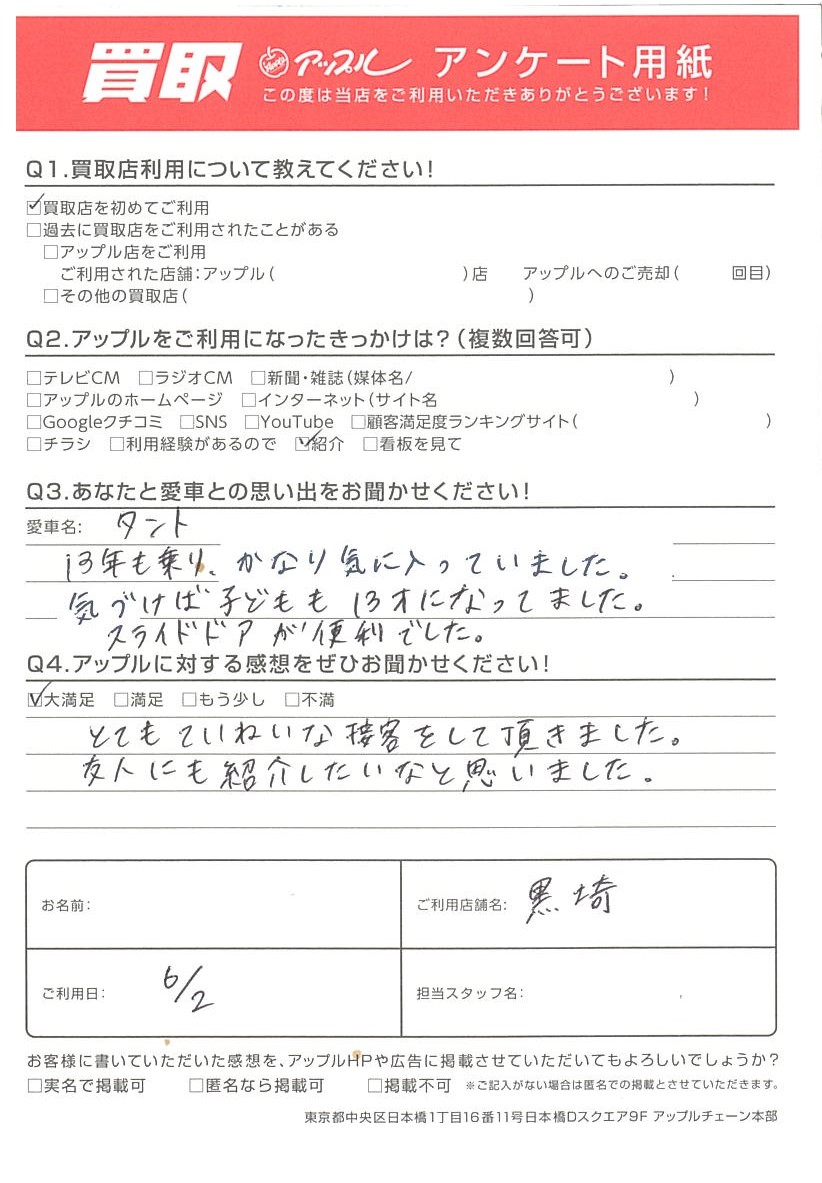 買取 アップル アンケート用紙
この度は当店をご利用いただきありがとうございます!
Q1.買取店利用について教えてください!
☑買取店を初めてご利用
□過去に買取店をご利用されたことがある
□アップル店をご利用
ご利用された店舗:アップル( )店 アップルへのご売却( 回目)
□その他の買取店( )
Q2.アップルをご利用になったきっかけは?(複数回答可)
□テレビCM □ラジオCM □新聞・雑誌(媒体名/ )
□アップルのホームページ □インターネット(サイト名 )
□Googleクチコミ □SNS □YouTube □顧客満足度ランキングサイト( )
□チラシ □利用経験があるので ☑紹介 □看板を見て
Q3.あなたと愛車との思い出をお聞かせください!
愛車名: タント
13年も乗り、かなり気に入っていました。
気づけば子どもも13才になってました。
スライドドアが便利でした。
Q4.アップルに対する感想をぜひお聞かせください!
☑大満足 □満足 □もう少し □不満
とてもていねいな接客をして頂きました。
友人にも紹介したいなと思いました。
お名前: ご利用店舗名: 黒埼
ご利用日: 6/2 担当スタッフ名:
お客様に書いていただいた感想を、アップルHPや広告に掲載させていただいてもよろしいでしょうか?
□実名で掲載可 □匿名なら掲載可 □掲載不可 ※ご記入がない場合は匿名での掲載とさせていただきます。
東京都中央区日本橋1丁目16番11号日本橋Dスクエア9F アップルチェーン本部